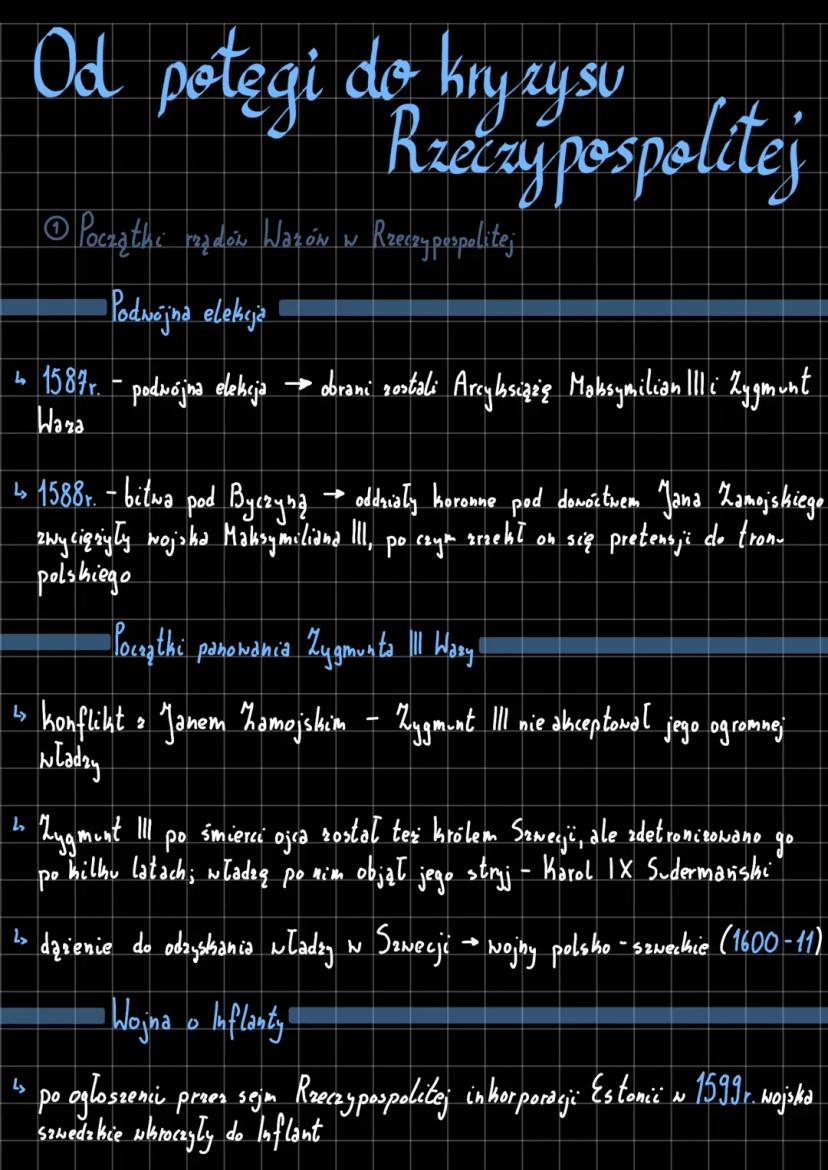 Od potęgi do kryzysu
Rzeczypospolitej
① Początki rządów Wazów w Rzeczypospolitej
Podwójna elekcja
↳ 1587r. - podwójna elekcja → obrani zostali Arcyksiążę Maksymilian III i Zygmunt
Waza
↳ 1588r. - bitwa pod Byczyną → oddziały koronne pod dowództwem Jana Zamojskiego
zwyciężyły wojska Maksymiliana III, po czym zrzekł on się pretensji do tronu
polskiego
Początki panowania Zygmunta III Wazy
↳ konflikt z Janem Zamojskim - Zygmunt III nie akceptował jego ogromnej
władzy
↳ Zygmunt III po śmierci ojca został też królem Szwecji, ale zdetronizowano go
po kilku latach; władzę po nim objął jego stryj - Karol IX Sudermański
↳ dążenie do odzyskania władzy w Szwecji → wojny polsko-szweckie (1600-11)
Wojna o Inflanty
↳ po ogłoszeniu przez sejm Rzeczypospolitej inkorporacji Estonii w 1599r. wojska
szwedzkie wkroczyły do Inflant